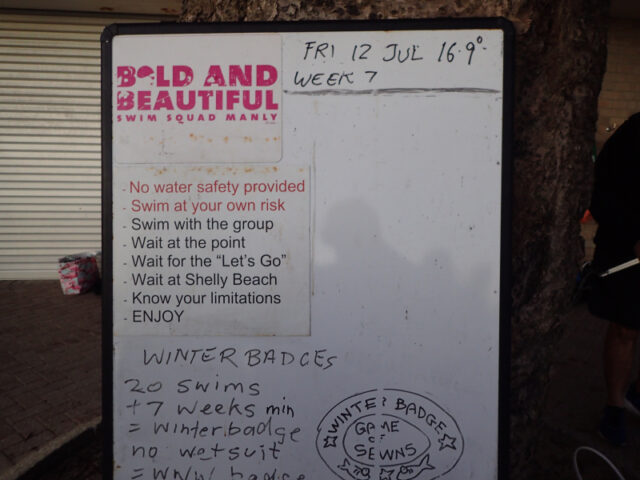 BOLD AND
BEAUTIFUL
SWIM SQUAD MANLY
FRI 12 JUL 16.9°
WEEK 7
- No water safety provided
- Swim at your own risk
- Swim with the group
- Wait at the point
- Wait for the "Let's Go"
- Wait at Shelly Beach
- Know your limitations
- ENJOY
WINTER BADGES
20 swims
+7 weeks min
= winter badge
no wetsuit
= WNW badge
WINTER BADGE
GAME
OF
SEWNS